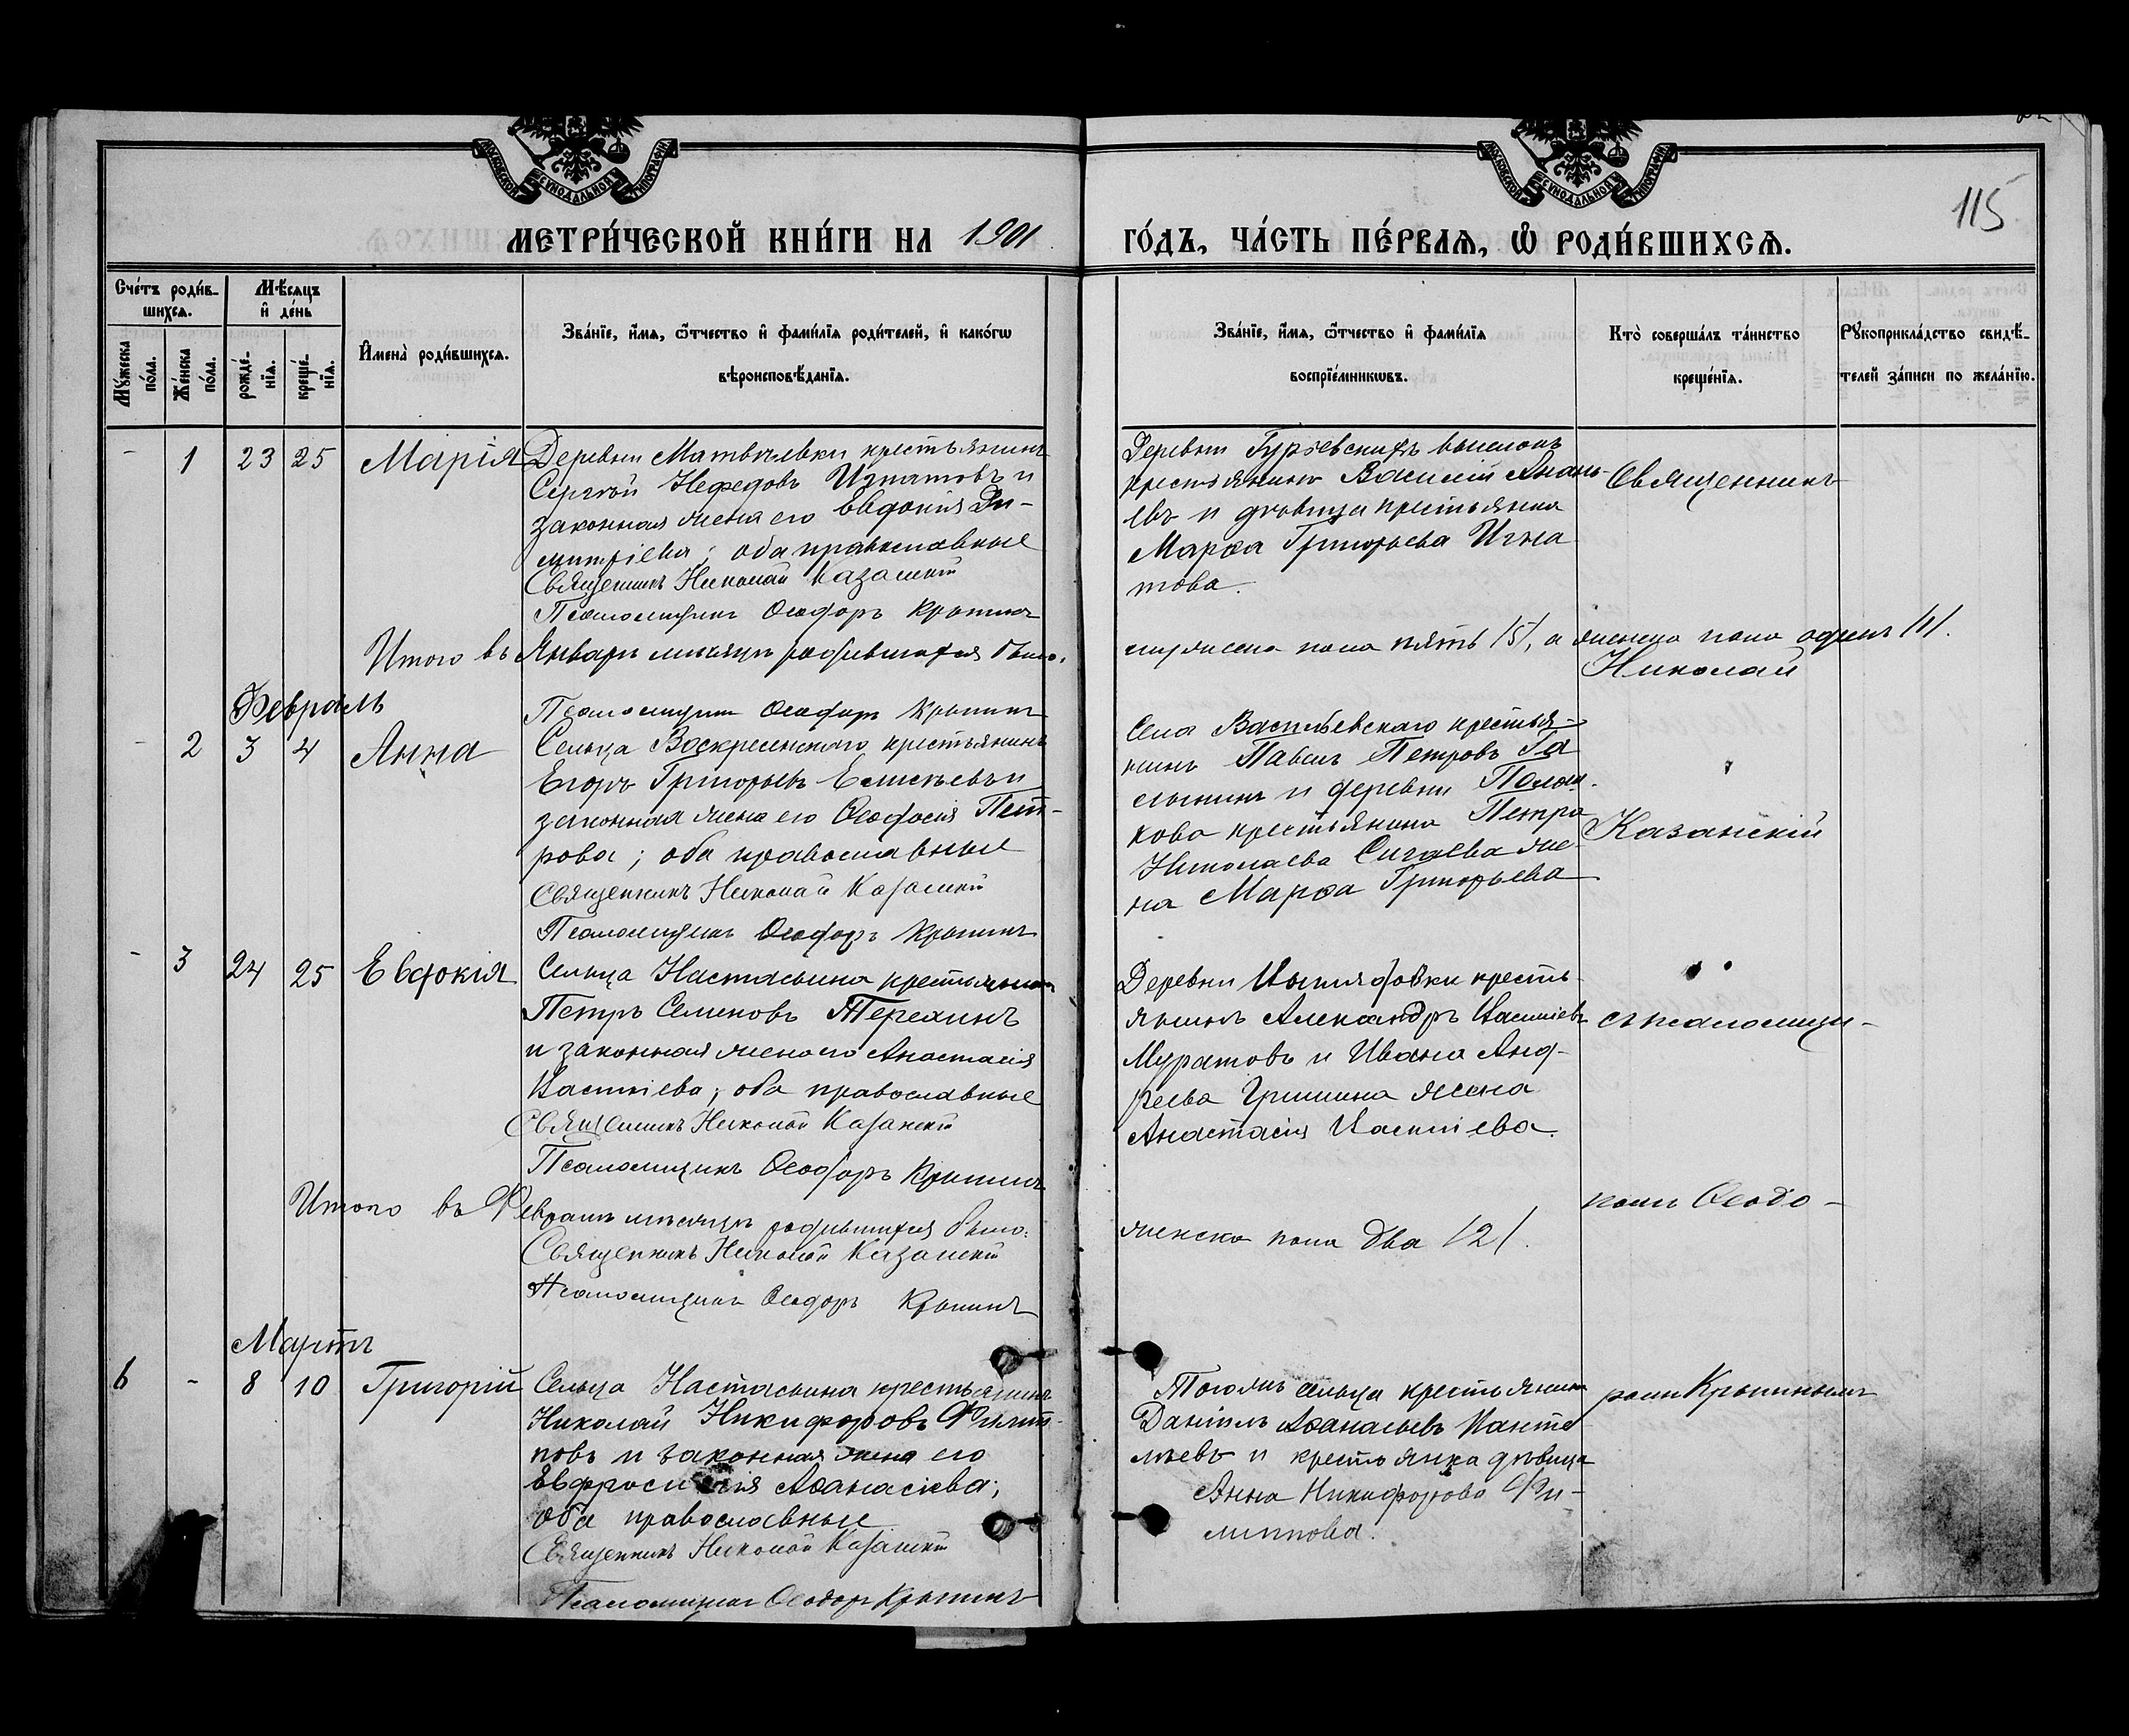 МОСКОВСКОЙ СѴНОДАЛЬНОЙ ТИПОГРАФІИ
МОСКОВСКОЙ СѴНОДАЛЬНОЙ ТИПОГРАФІИ
115
МЕТРИ́ЧЕСКОЙ КНИ́ГИ НА 1901
ГО́ДЪ, ЧА́СТЬ ПЕ́РВАѦ, Ѡ РОДИ́ВШИХСѦ.
Сче́тъ роди́в-
шихся.
Мꙋжеска по́ла.
Же́нска по́ла.
Мѣ́сяцъ
и҆ де́нь
рожде́-
нїя.
креще́-
нїя.
И҆мена̀ роди́вшихся.
Зва́нїе, и҆́мя, ѻ҆́тчество и҆ фами́лїя роди́телей, и҆ како́гѡ
вѣроисповѣ́данїя.
Зва́нїе, и҆́мя, ѻ҆́тчество и҆ фами́лїя
воспрїе́мникѡвъ.
Кто̀ соверша́лъ та́инство
креще́нїя.
Рꙋкоприкла́дство свидѣ́-
телей за́писи по жела́нїю.
- 1 23 25 Марія
Деревни Матвѣевки крестьянинъ
Сергѣй Нефедовъ Игнатовъ и
законная жена его Евдокія Ди-
митріева; оба православные
Священникъ Николай Казанскій
Псаломщикъ Ѳеодоръ Крынинъ
Деревни Гурьевскихъ выселокъ
крестьянинъ Василій Анань-
евъ и дѣвица крестьянка
Марѳа Григорьева Игна
това.
Священникъ
Итого въ Январѣ мѣсяцѣ родившихся было:
мужеска пола пять /5/, а женска пола одинъ /1/.
Николай
Февраль
Псаломщикъ Ѳеодоръ Крынинъ
- 2 3 4 Анна
Сельца Воскресенскаго крестьянинъ
Егоръ Григорьевъ Елисѣевъ и
законная жена его Ѳеодосія Пет-
рова; оба православные
Священникъ Николай Казанскій
Псаломщикъ Ѳеодоръ Крынинъ
Села Васильевскаго крестья-
нинъ Павелъ Петровъ
и деревни
кова крестьянина Петра
Николаева Сигаева же-
на Марѳа Григорьева
Казанскій
- 3 24 25 Евдокія
Сельца Настасьина крестьянинъ
Петръ Семеновъ Терехинъ
и законная жена его Анастасія
Васильева; оба православные
Священникъ Николай Казанскій
Псаломщикъ Ѳеодоръ Крынинъ
Деревни кресть-
янинъ Александръ Васильевъ
Муратовъ и Ивана Анд-
реева Гришина жена
Анастасія Васильева.
съ псаломщи-
Итого въ Февралѣ мѣсяцѣ родившихся было:
Священникъ Николай Казанскій
Псаломщикъ Ѳеодоръ Крынинъ
женска пола два /2/.
комъ Ѳеодо-
Мартъ
6 - 8 10 Григорій
Сельца Настасьина крестьянинъ
Николай Никифоровъ Филип-
повъ и законная жена его
Евфросинія Аѳанасіева;
оба православные
Священникъ Николай Казанскій
Псаломщикъ Ѳеодоръ Крынинъ
Тогожъ сельца крестьянинъ
Даніилъ Аѳанасьевъ Панте
лѣевъ и крестьянка дѣвица
Анна Никифорова Фи-
липпова.
ромъ Крынинымъ